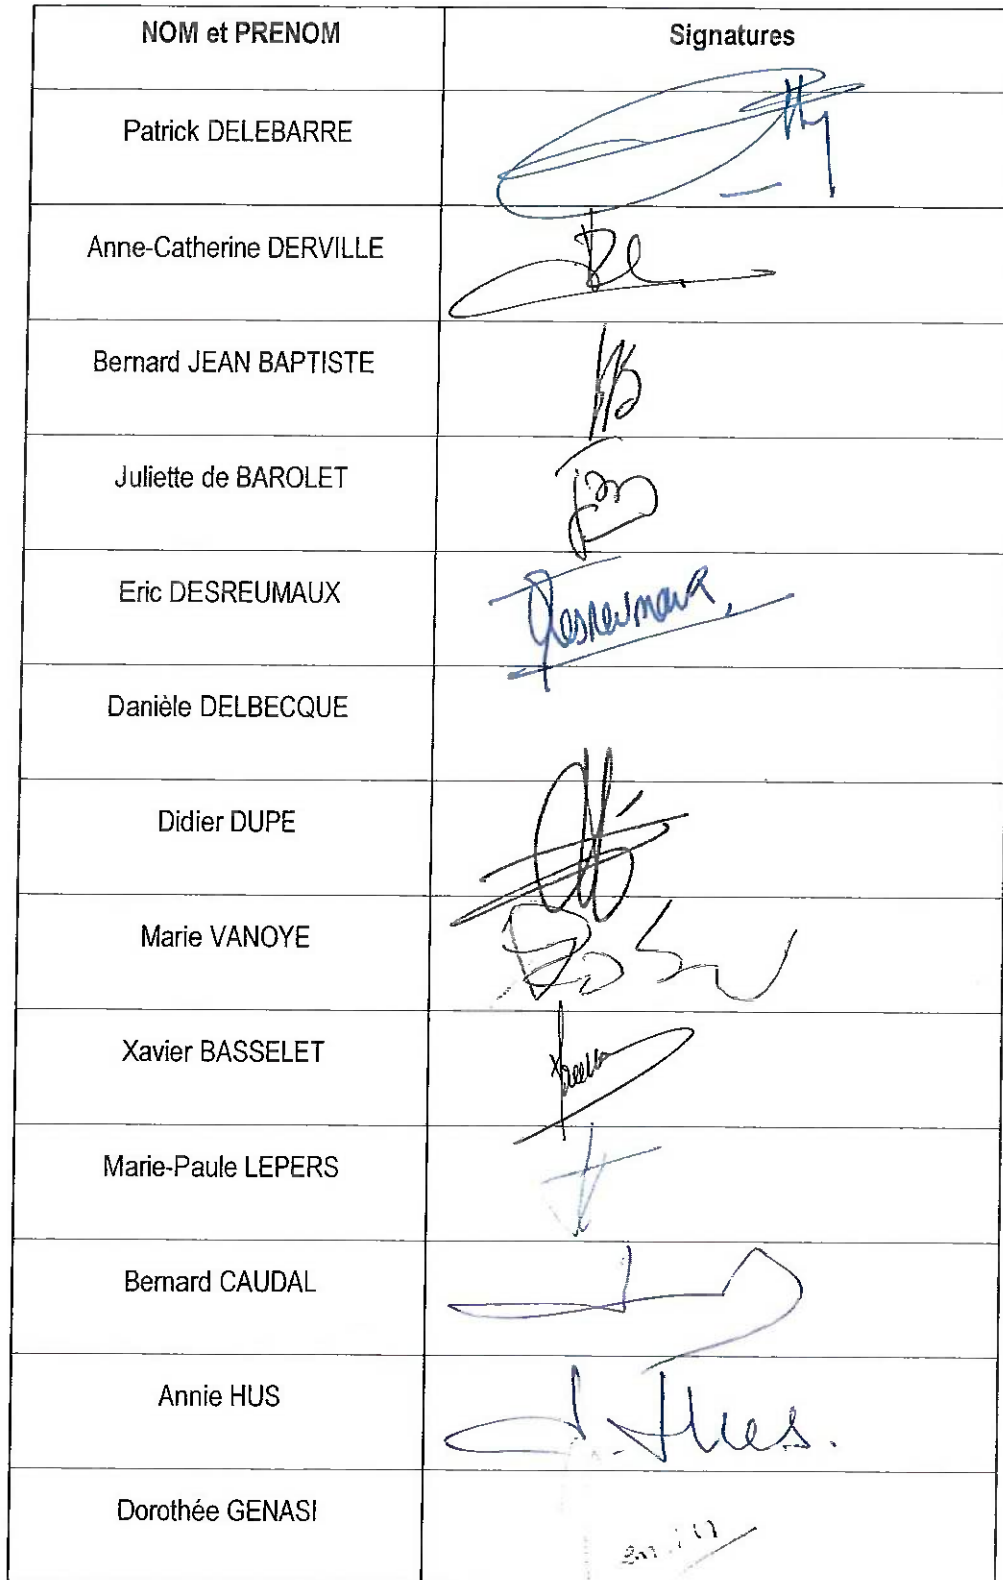 NOM et PRENOM Signatures
Patrick DELEBARRE
Anne-Catherine DERVILLE
Bernard JEAN BAPTISTE
Juliette de BAROLET
Eric DESREUMAUX Desreumaux
Danièle DELBECQUE
Didier DUPE
Marie VANOYE
Xavier BASSELET
Marie-Paule LEPERS
Bernard CAUDAL
Annie HUS A. Hus.
Dorothée GENASI